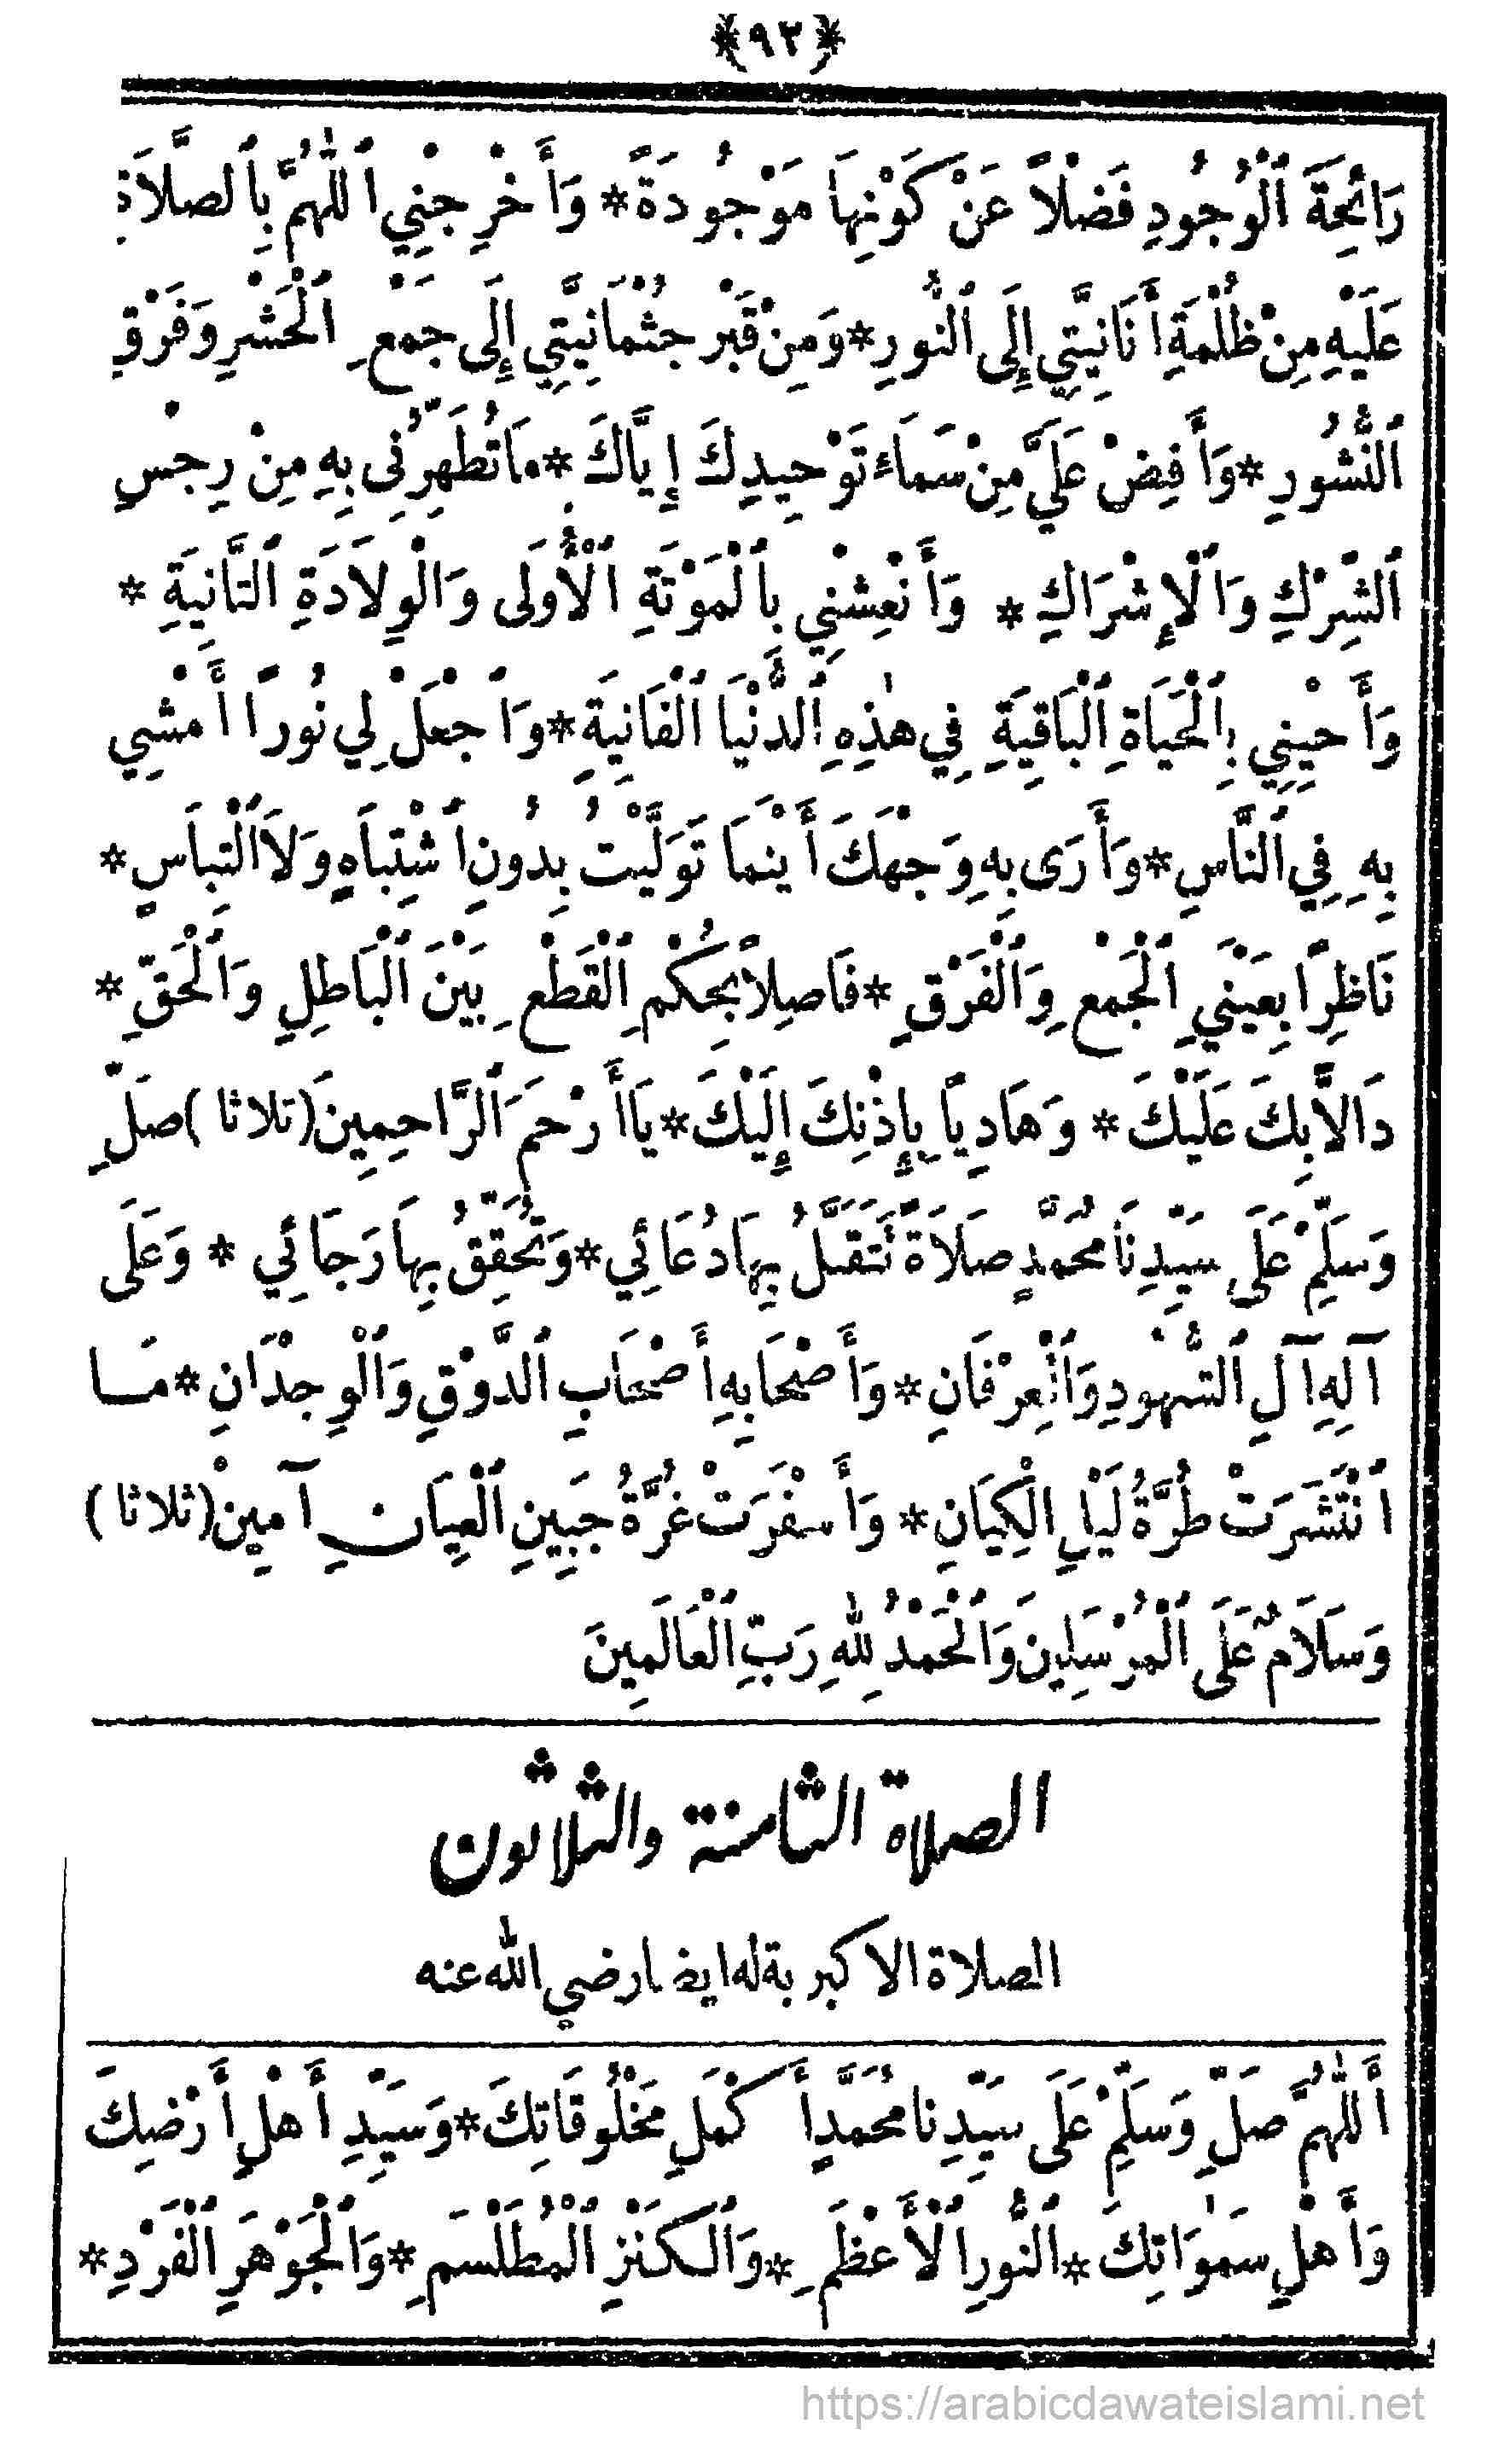 ﴿٩٣﴾
رَائِحَةَ ٱلْوُجُودِ فَضْلاً عَنْ كَوْنِهَا مَوْجُودَةً * وَأَخْرِجْنِي ٱللّٰهُمَّ بِٱلصَّلَاةِ
عَلَيْهِ مِنْ ظُلْمَةِ أَنَانِيَّتِي إِلَى ٱلنُّورِ * وَمِنْ قَبْرِ جُثْمَانِيَّتِي إِلَى جَمْعِ ٱلْحَشْرِ وَفَرْقِ
ٱلنُّشُورِ * وَأَفِضْ عَلَيَّ مِنْ سَمَاءِ تَوْحِيدِكَ إِيَّاكَ * مَا تُطَهِّرُنِي بِهِ مِنْ رِجْسِ
ٱلشِّرْكِ وَٱلْإِشْرَاكِ * وَأَنْعِشْنِي بِٱلْمَوْتَةِ ٱلْأُولَى وَٱلْوِلَادَةِ ٱلثَّانِيَةِ *
وَأَحْيِنِي بِٱلْحَيَاةِ ٱلْبَاقِيَةِ فِي هٰذِهِ ٱلدُّنْيَا ٱلْفَانِيَةِ * وَٱجْعَلْ لِي نُوراً أَمْشِي
بِهِ فِي ٱلنَّاسِ * وَأَرَى بِهِ وَجْهَكَ أَيْنَمَا تَوَلَّيْتُ بِدُونِ ٱشْتِبَاهٍ وَلَا ٱلْتِبَاسٍ *
نَاظِرًا بِعَيْنَيِ ٱلْجَمْعِ وَٱلْفَرْقِ * فَاصِلاً بِحُكْمِ ٱلْقَطْعِ بَيْنَ ٱلْبَاطِلِ وَٱلْحَقِّ *
دَالاًّ بِكَ عَلَيْكَ * وَهَادِياً بِإِذْنِكَ إِلَيْكَ * يَا أَرْحَمَ ٱلرَّاحِمِينَ (ثلاثا) صَلِّ
وَسَلِّمْ عَلَى سَيِّدِنَا مُحَمَّدٍ صَلَاةً تَتَقَبَّلُ بِهَا دُعَائِي * وَتُحَقِّقُ بِهَا رَجَائِي * وَعَلَى
آلِهِ آلِ ٱلشُّهُودِ وَٱلْعِرْفَانِ * وَأَصْحَابِهِ أَصْحَابِ ٱلذَّوْقِ وَٱلْوِجْدَانِ * مَا
ٱنْتَشَرَتْ طُرَّةُ لَيْلِ ٱلْكِيَانِ * وَأَسْفَرَتْ غُرَّةُ جَبِينِ ٱلْعِيَانِ آمِينْ (ثلاثا)
وَسَلَامٌ عَلَى ٱلْمُرْسَلِينَ وَٱلْحَمْدُ لِلّٰهِ رَبِّ ٱلْعَالَمِينَ
الصلاة الثامنة والثلاثون
الصلاة الاكبرية له ايضا رضي الله عنه
أَللّٰهُمَّ صَلِّ وَسَلِّمْ عَلَى سَيِّدِنَا مُحَمَّدٍ أَكْمَلِ مَخْلُوقَاتِكَ * وَسَيِّدِ أَهْلِ أَرْضِكَ
وَأَهْلِ سَمٰوَاتِكَ * ٱلنُّورِ ٱلْأَعْظَمِ * وَٱلْكَنْزِ ٱلْمُطَلْسَمِ * وَٱلْجَوْهَرِ ٱلْفَرْدِ *
https://arabicdawateislami.net